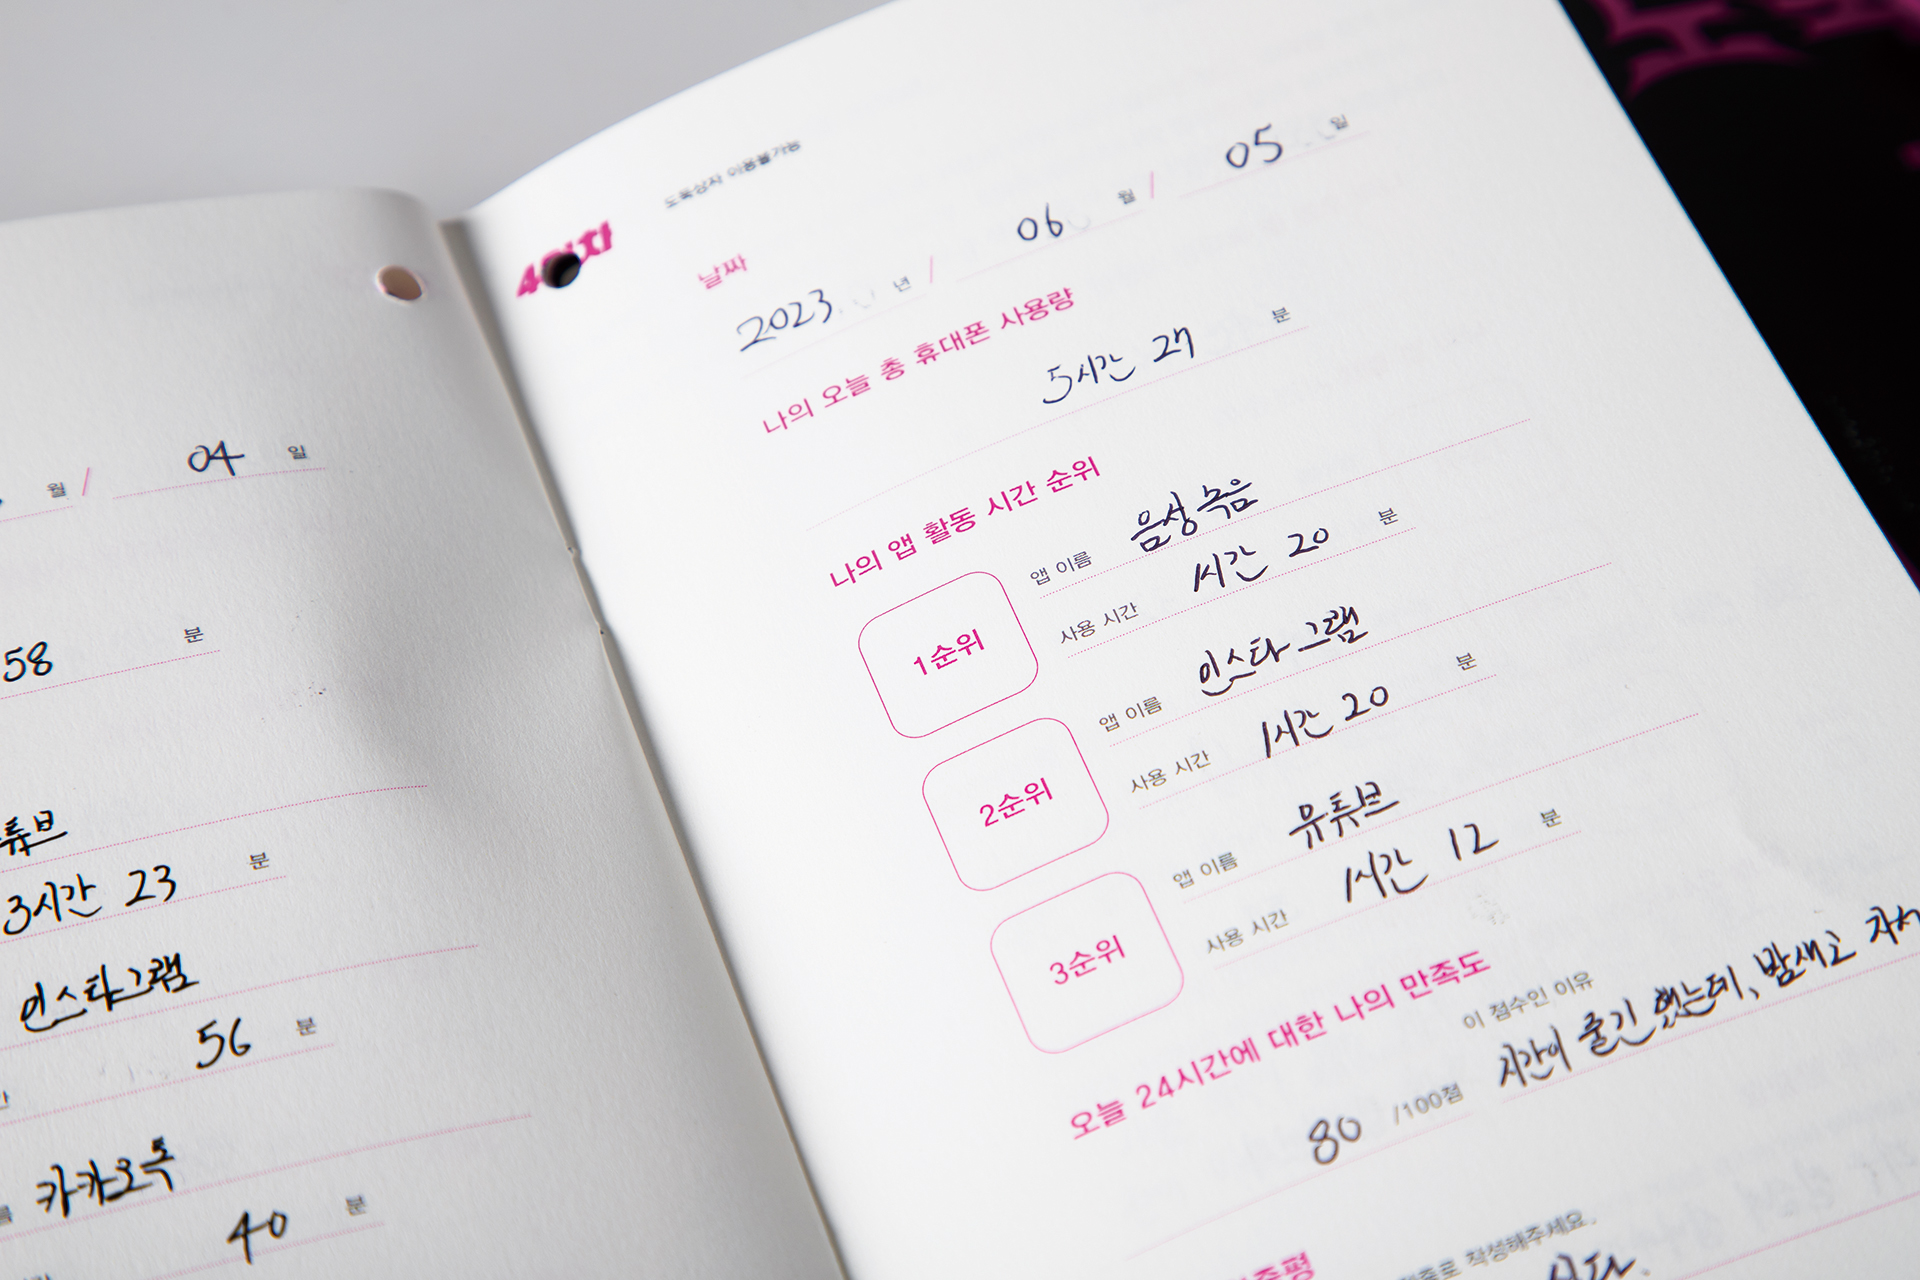 월 / 04 일
58 분
튜브
3시간 23 분
인스타그램
56 분
카카오톡
40 분
도둑상자 이용불가능
날짜
2023 년 / 06 월 / 05 일
나의 오늘 총 휴대폰 사용량
5시간 27 분
나의 앱 활동 시간 순위
1순위
앱 이름 음성녹음
사용 시간 1시간 20 분
2순위
앱 이름 인스타그램
사용 시간 1시간 20 분
3순위
앱 이름 유튜브
사용 시간 1시간 12 분
오늘 24시간에 대한 나의 만족도
이 점수인 이유
80 /100점
시간이 줄긴 했는데, 밤새고 자서
작성해주세요.